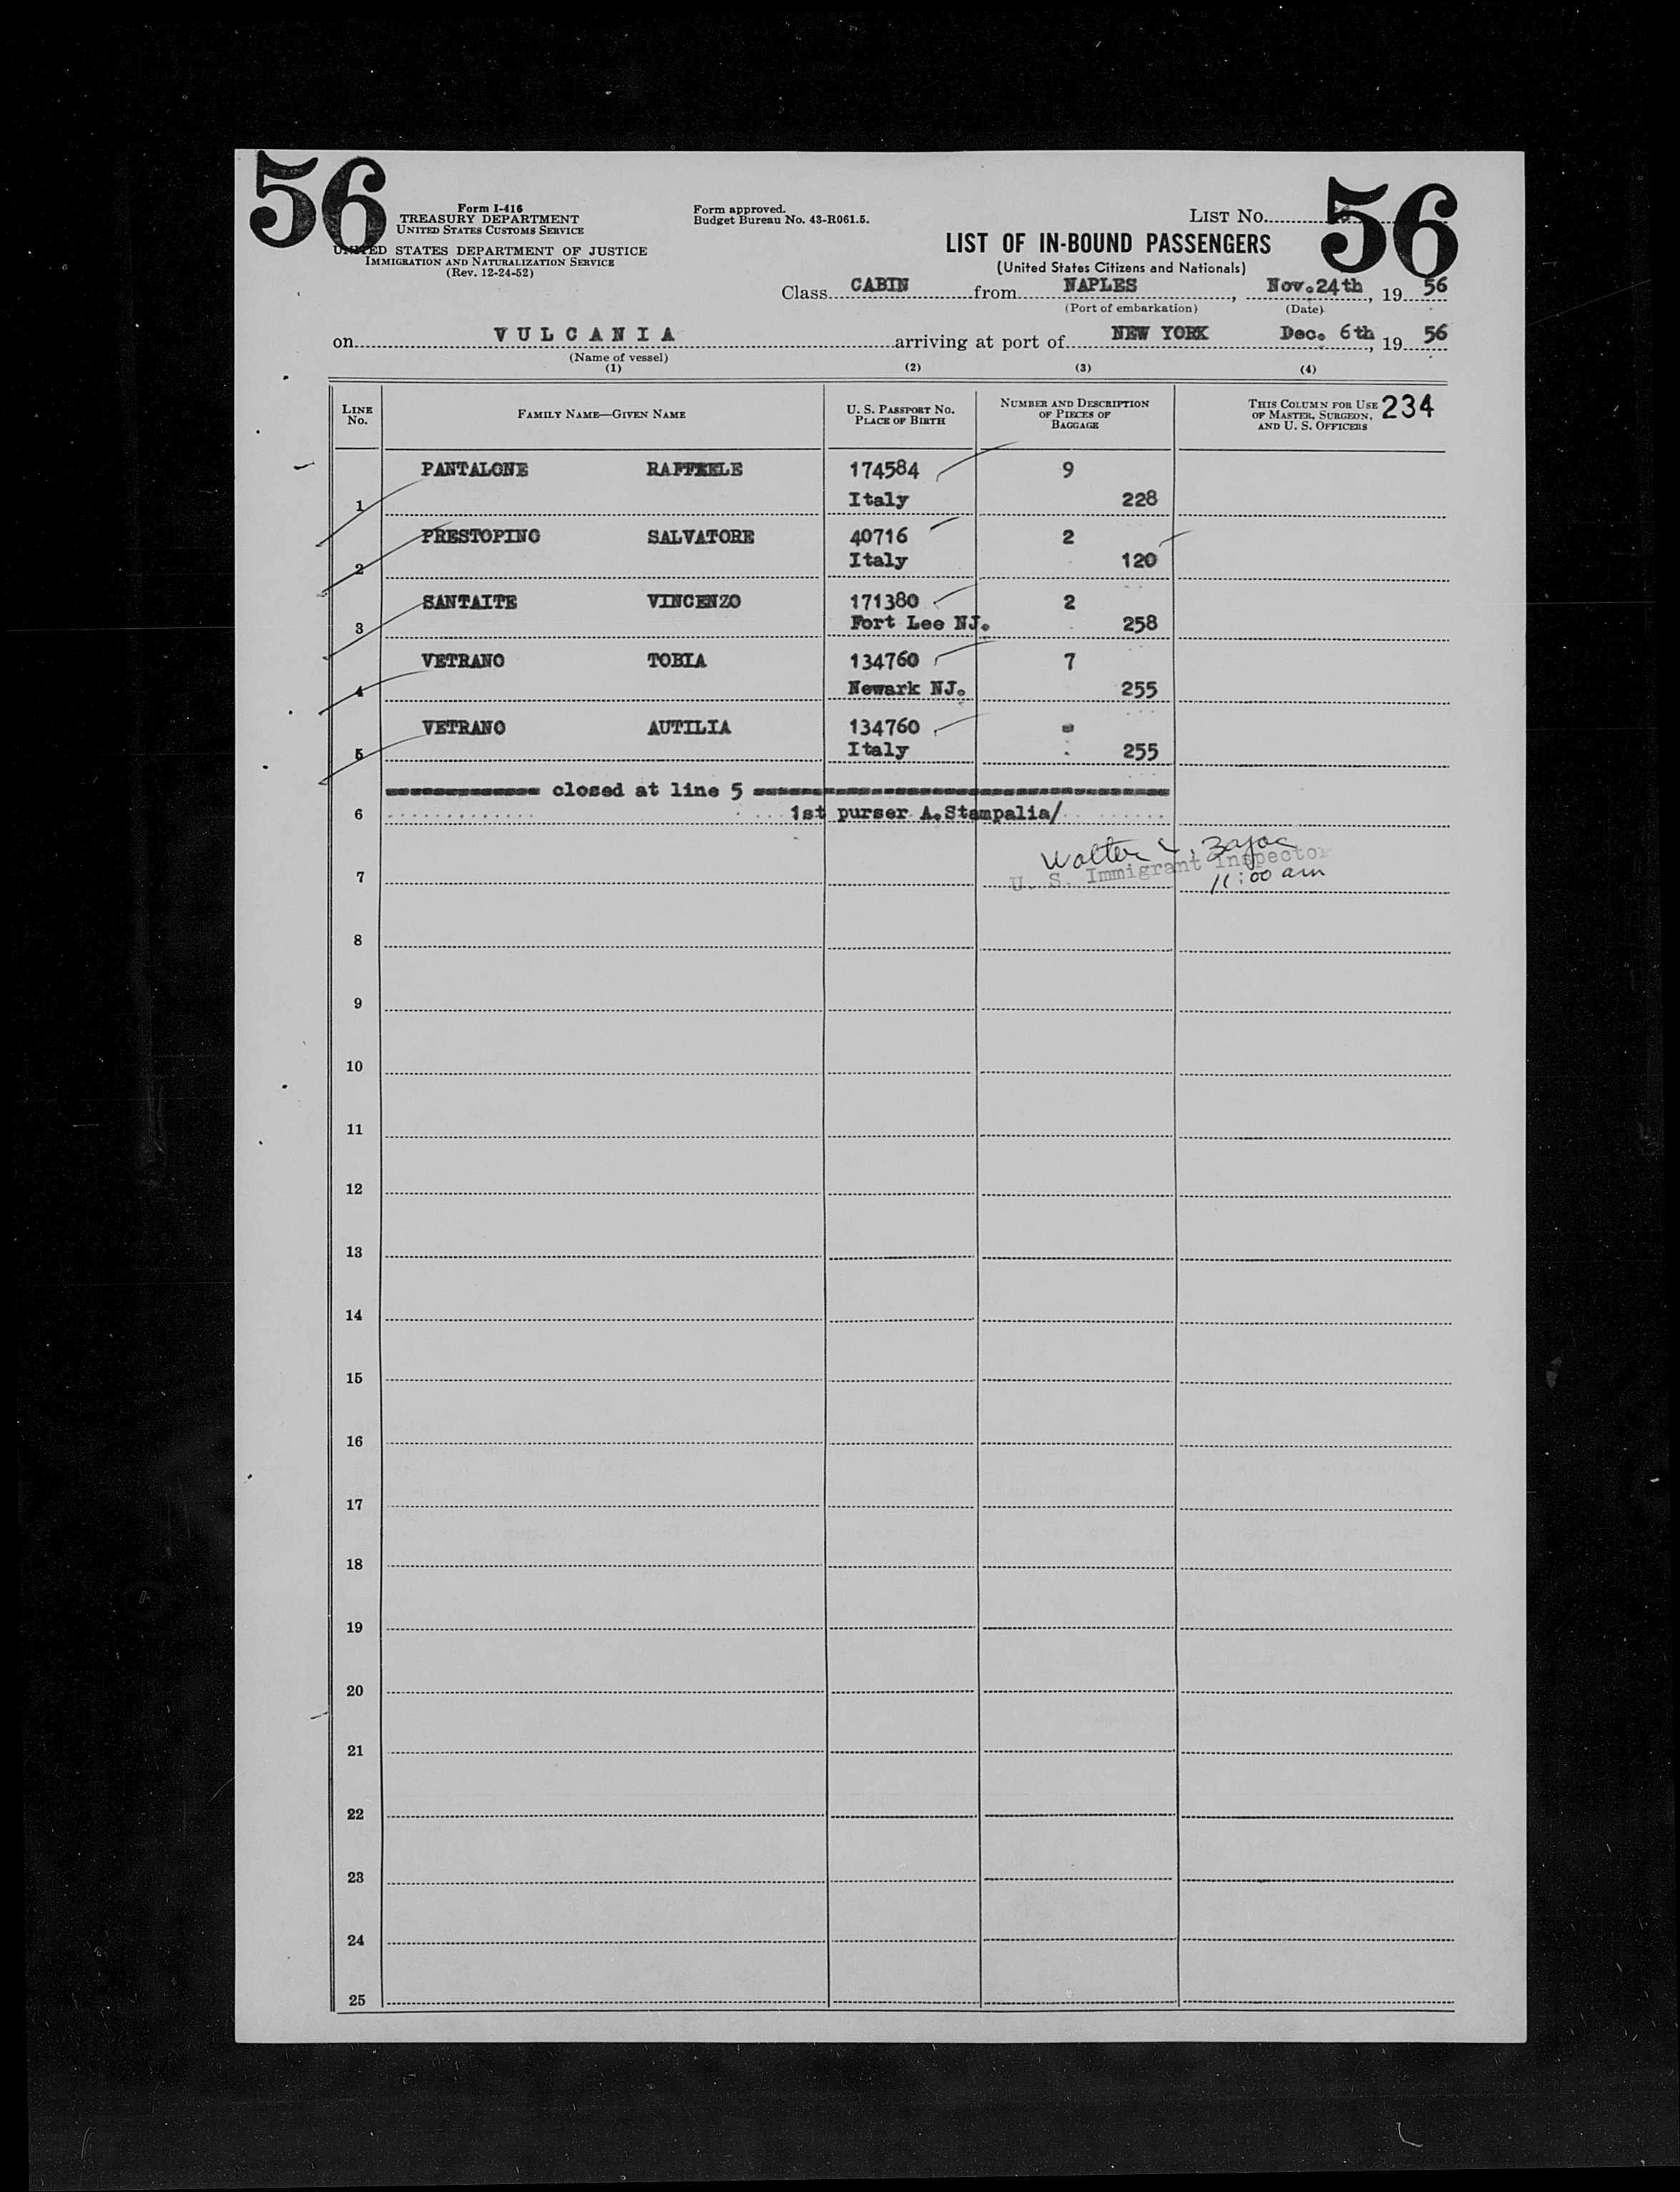 56
56
Form I-416
TREASURY DEPARTMENT
UNITED STATES CUSTOMS SERVICE
UNITED STATES DEPARTMENT OF JUSTICE
IMMIGRATION AND NATURALIZATION SERVICE
(Rev. 12-24-52)
Form approved.
Budget Bureau No. 43-R061.5.
LIST NO.
LIST OF IN-BOUND PASSENGERS
(United States Citizens and Nationals)
Class CABIN from NAPLES, Nov.24th, 19 56
(Port of embarkation) (Date)
on VULCANIA arriving at port of NEW YORK Dec. 6th, 19 56
(Name of vessel)
(1) (2) (3) (4)
LINE NO. FAMILY NAME—GIVEN NAME U. S. PASSPORT NO. PLACE OF BIRTH NUMBER AND DESCRIPTION OF PIECES OF BAGGAGE THIS COLUMN FOR USE OF MASTER, SURGEON, AND U. S. OFFICERS 234
PANTALONE RAFFEELE 174584 9
1 Italy 228
PRESTOPINO SALVATORE 40716 2
2 Italy 120
SANTAITE VINCENZO 171380 2
3 Fort Lee NJ. 258
VETRANO TOBIA 134760 7
4 Newark NJ. 255
VETRANO AUTILIA 134760 =
5 Italy 255
============ closed at line 5 ================================
6 1st purser A.Stampalia/
Walter L. Zajac
7 U. S. Immigrant Inspector
11:00 am
8
9
10
11
12
13
14
15
16
17
18
19
20
21
22
23
24
25